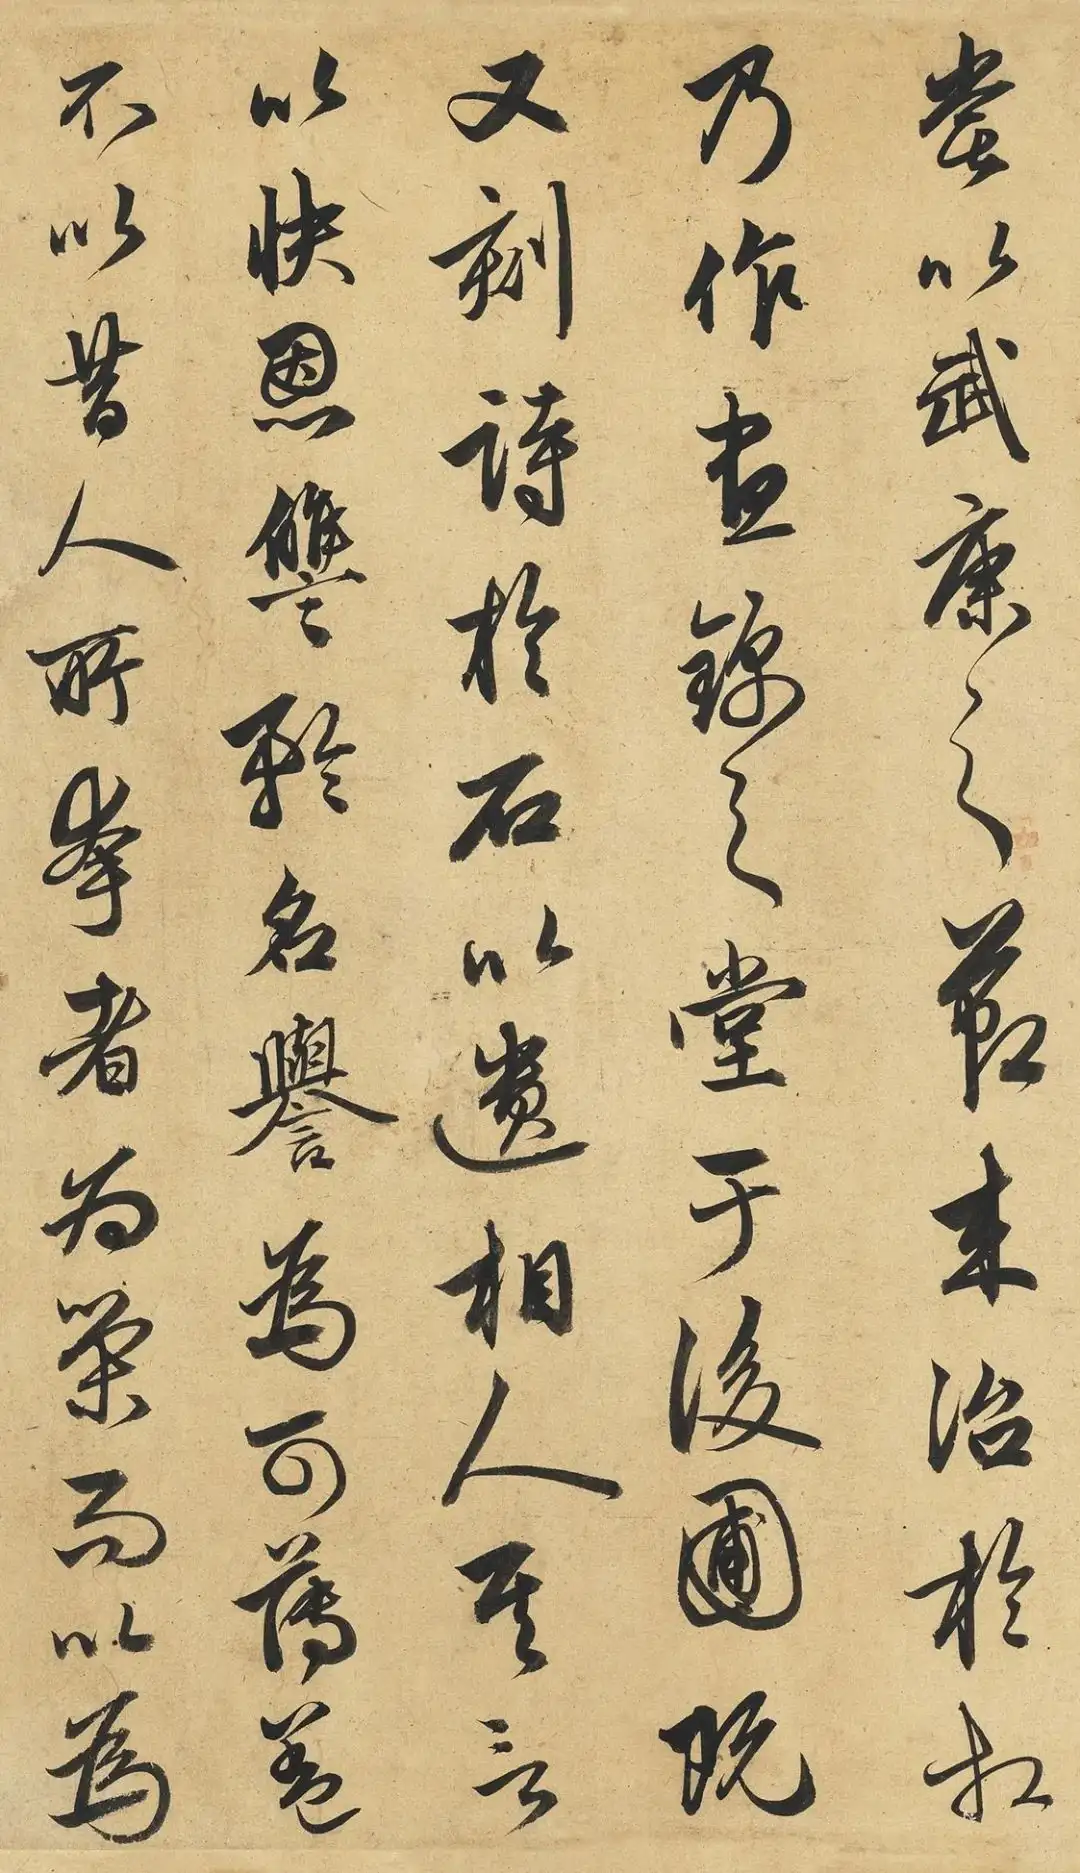 嘗以武康之節来治於相
乃作晝錦之堂于後圃既
又刻詩於石以遺相人其言
以快恩讐矜名譽為可薄蓋
不以昔人所夸者为榮而以為